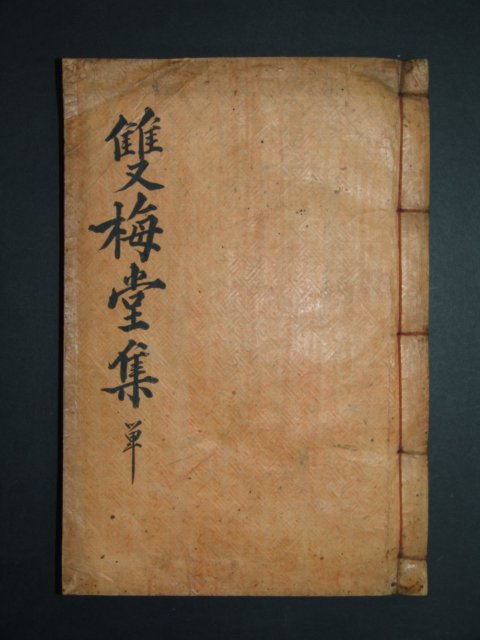 雙梅堂集 单